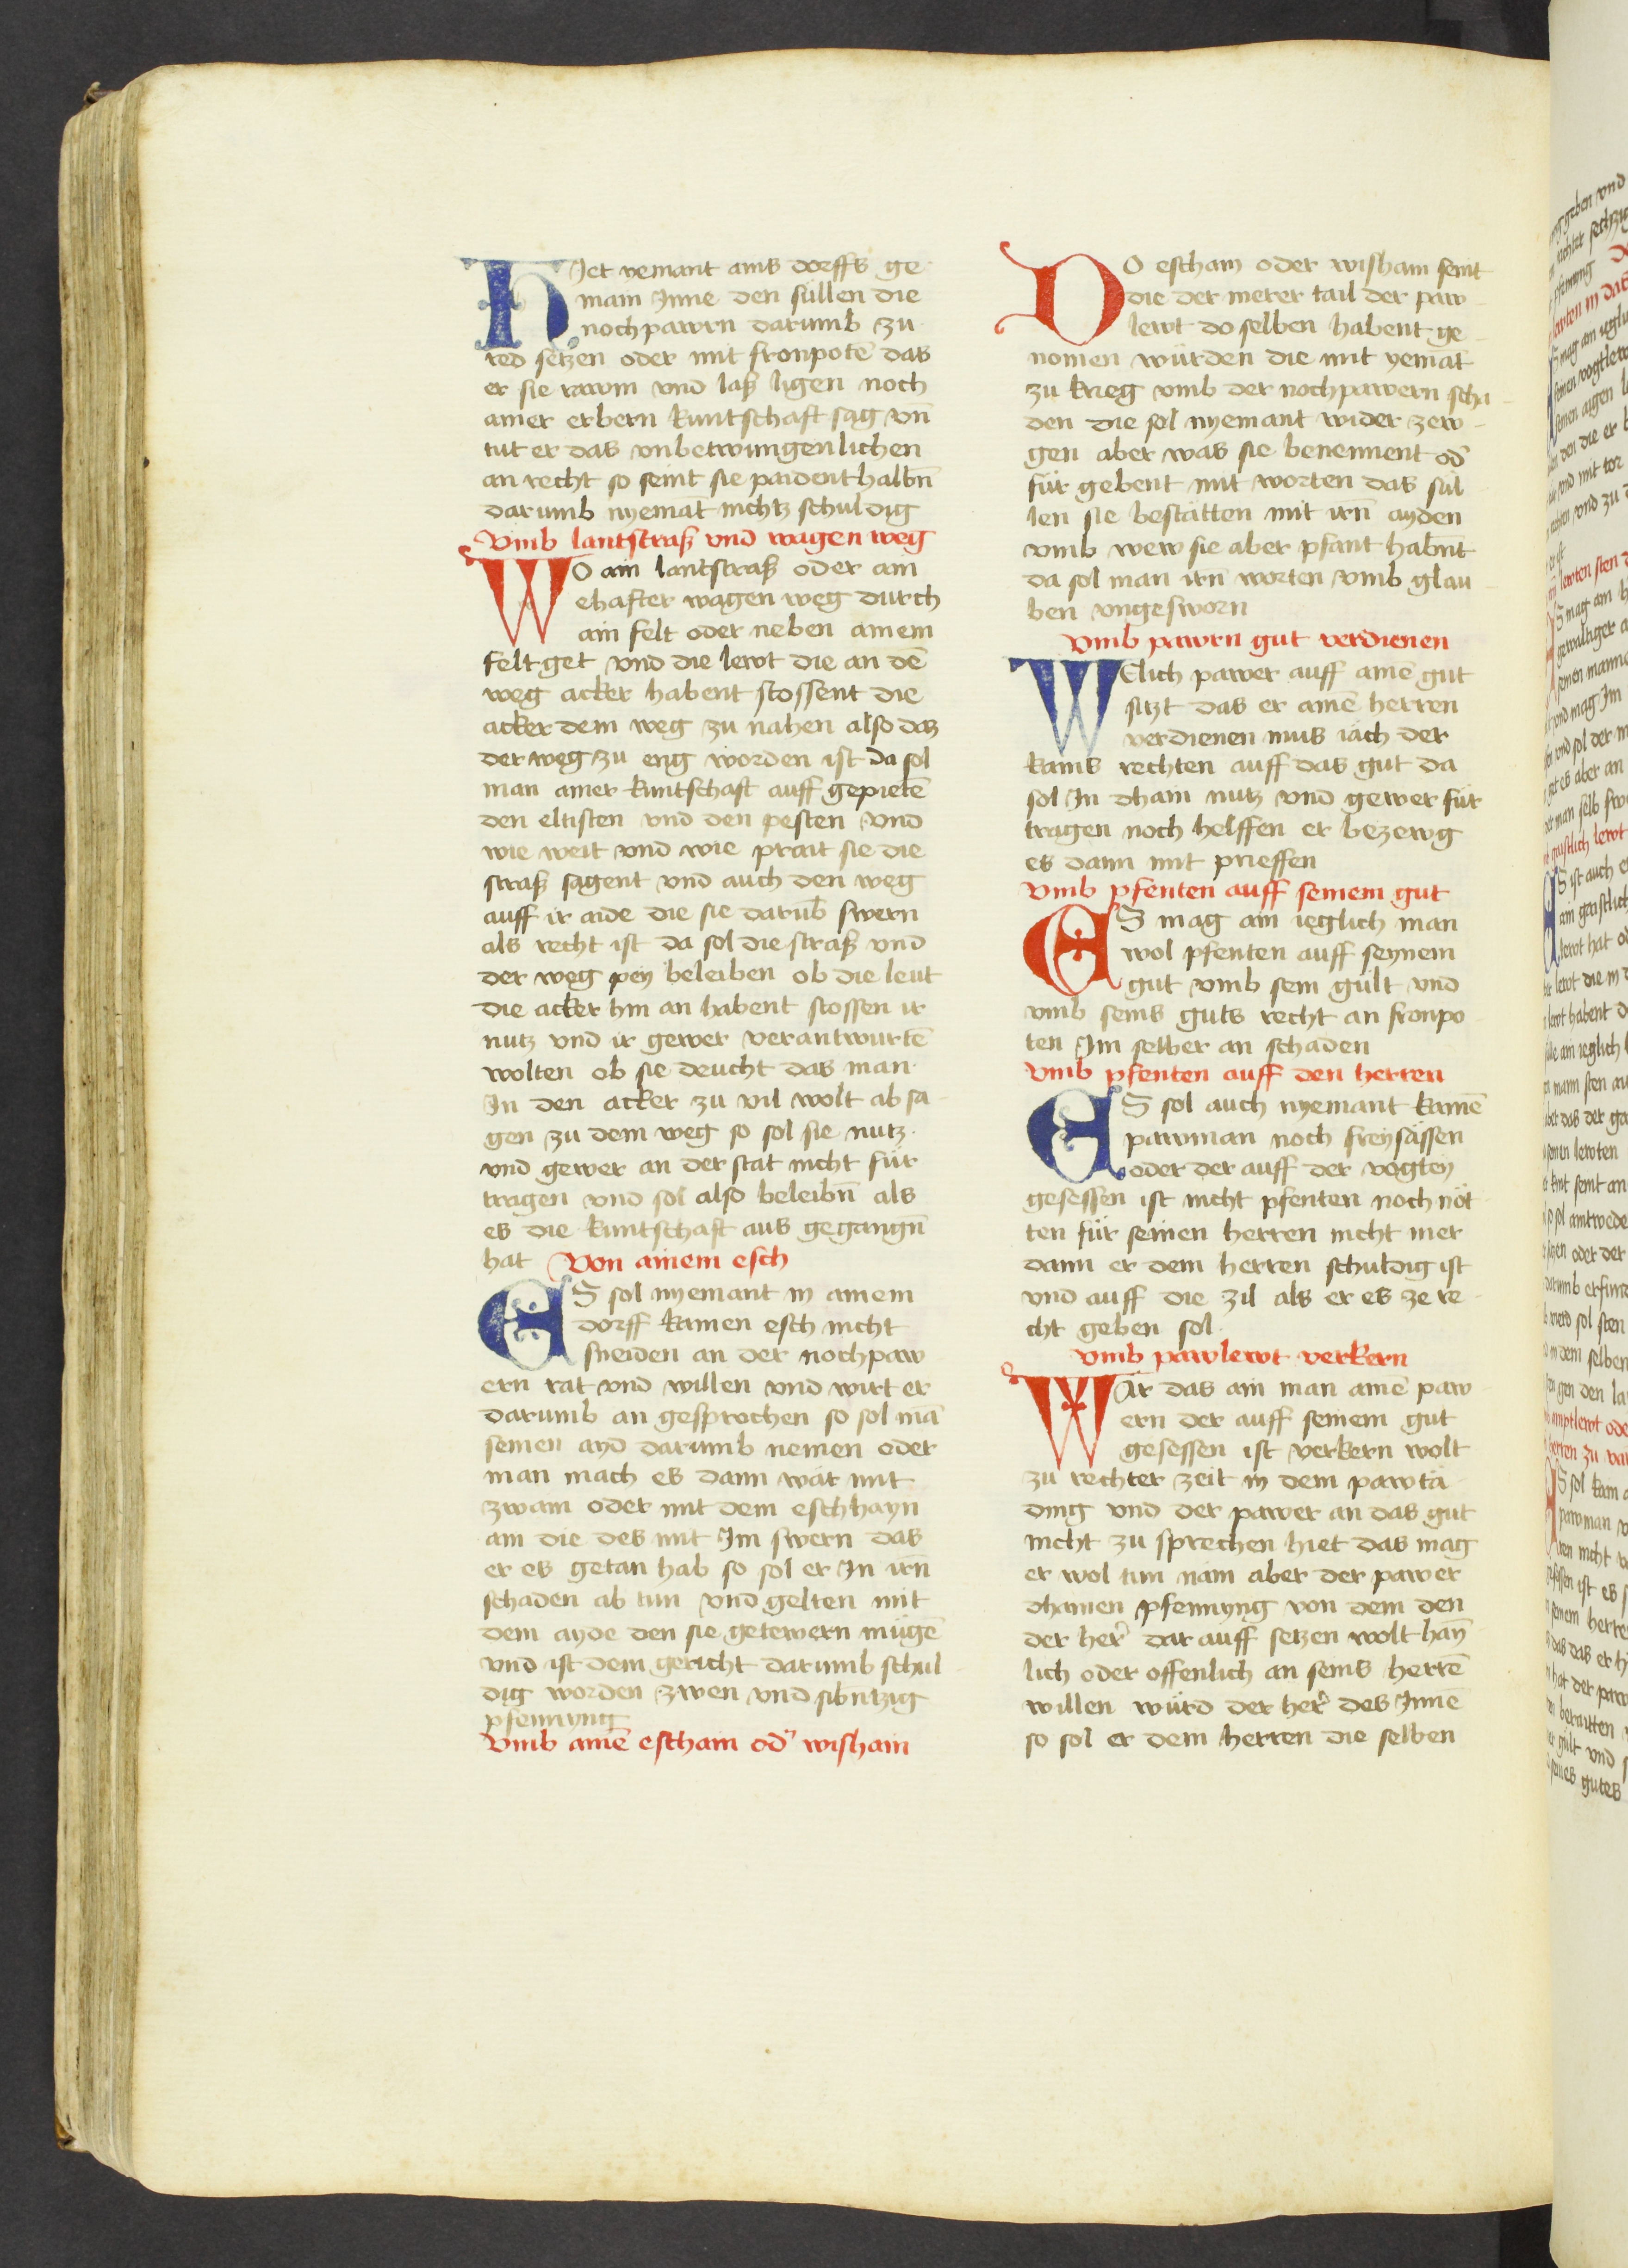 HIet yemant ains dorffs ge
main Inne den süllen die
nochpawrn darumb zu
red setzen oder mit fronpotē das
er sie rawm vnd laß ligen noch
ainer erbern kuntschaft sag vn̄
tut er das vnbetwungenlichen
an recht so seint sie paidenthalbn̄
darumb nyemat nichtz schuldig
Vmb lantstraß vnd wagen weg
WO ain lantstraß oder ain
ehafter wagen weg durch
ain felt oder neben ainem
felt get vnd die lewt die an dē
weg acker habent stossent die
acker dem weg zu nahen also daz
der weg zu eng worden ist da sol
man ainer kuntschaft auff gepietē
den eltisten vnd den pesten vnd
wie weit vnd wie prait sie die
straß sagent vnd auch den weg
auff ir aide die sie darub̄ swern
als recht ist da sol die straß vnd
der weg pey beleiben ob die leut
die acker hin an habent stossen ir
nutz vnd ir gewer verantwurtē
wolten ob sie deucht das man
In den acker zu vil wolt ab sa
gen zu dem weg so sol sie nutz
vnd gewer an der stat nicht für
tragen vnd sol also beleibn̄ als
es die kuntschaft aus gegangn̄
hat Von ainem esch
ES sol nyemant in ainem
dorff kainen esch nicht
sneiden an der nochpaw
ern rat vnd willen vnd wirt er
darumb an gesprochen so sol mā
seinen ayd darumb nemen oder
man mach es dann war mit
zwain oder mit dem eschhayn
ain die des mit Im swern das
er es getan hab so sol er In irn̄
schaden ab tun vnd gelten mit
dem ayde den sie getewern mügē
vnd ist dem gericht darumb schul
dig worden zwen vnd sibntzig
pfennyng
Vmb ainē eschain od' wishain
DO eschain oder wishain seint
die der merer tail der paw
lewt do selben habent ge
nomen würden die mit yemāt
zu krieg vmb der nochpawern scha
den die sol nyemant wider zew
gen aber was sie benennent od'
für gebent mit worten das sül
len sie bestätten mit irn̄ ayden
vmb wew sie aber pfant habn̄t
da sol man irn̄ worten vmb glau
ben vngesworn
Vmb pawrn gut verdienen
WElich pawer auff ainē gut
sitzt das er ainē herren
verdienen mus iäch der
kains rechten auff das gut da
sol In dhain nutz vnd gewer für
tragen noch helffen er bezewg
es dann mit prieffen
Vmb pfenten auff seinem gut
ES mag ain ieglich man
wol pfenten auff seynem
gut vmb sein gült vnd
vmb seins guts recht an fronpo
ten Im selber an schaden
Vmb pfenten auff den herren
ES sol auch nyemant kainē
pawman noch freysässen
oder der auff der vogtey
gesessen ist nicht pfenten noch nöt
ten für seinen herren nicht mer
dann er dem herren schuldig ist
vnd auff die zil als er es ze re
cht geben sol
Vmb pawlewt verkern
WÄr das ain man ainē paw
ern der auff seinem gut
gesessen ist verkern wolt
zu rechter zeit in dem pawtä
ding vnd der pawer an das gut
nicht zu sprechen hiet das mag
er wol tun näm aber der pawer
dhainen pfennyng von dem den
der her' dar auff setzen wolt hāy
lich oder offenlich an seins herrē
willen würd der her' des Innē
so sol er dem herren die selben